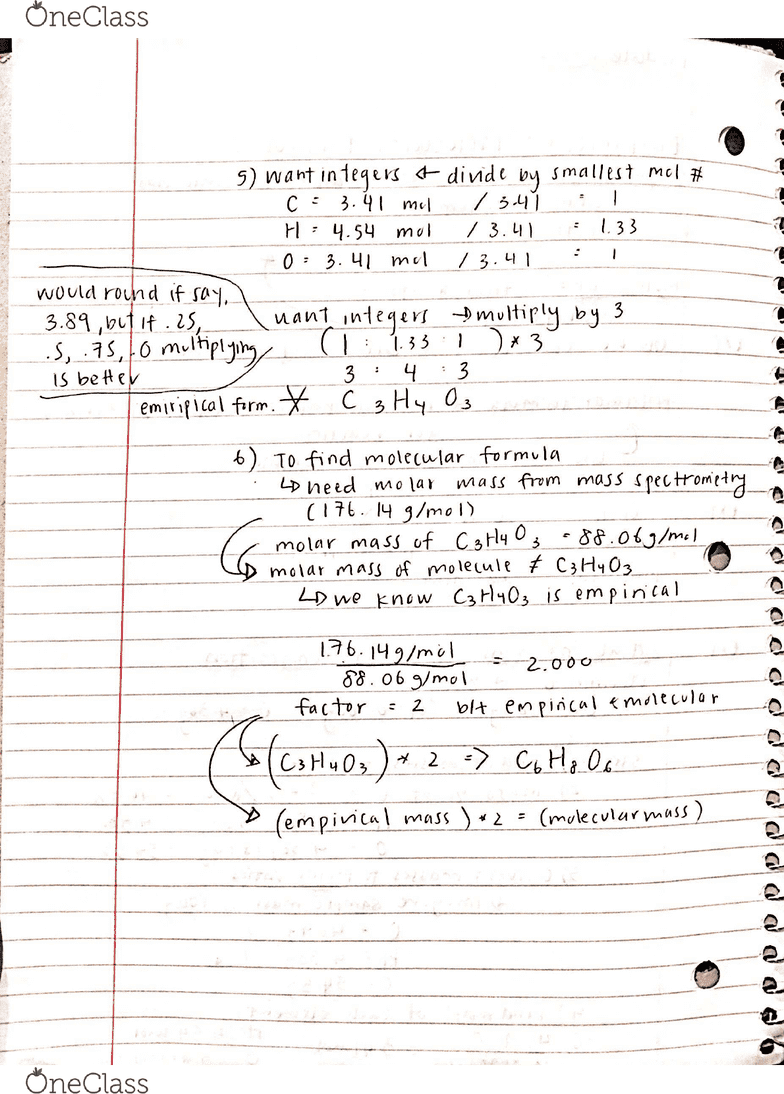 OneClass
5) want integers ← divide by smallest mol #
C = 3.41 mol / 3.41 = 1
H = 4.54 mol / 3.41 = 1.33
O = 3.41 mol / 3.41 = 1
would round if say,
3.89, but if .25,
.5, .75, .0 multiplying
is better
want integers → multiply by 3
(1 : 1.33 : 1) * 3
3 : 4 : 3
emiripical form. * C3H4O3
6) To find molecular formula
↳ need molar mass from mass spectrometry
(176.14 g/mol)
molar mass of C3H4O3 = 88.06 g/mol
molar mass of molecule ≠ C3H4O3
↳ we know C3H4O3 is empirical
176.14 g/mol
88.06 g/mol
= 2.000
factor = 2 b/t empirical & molecular
(C3H4O3) * 2 => C6H8O6
(empirical mass) * 2 = (molecular mass)
OneClass